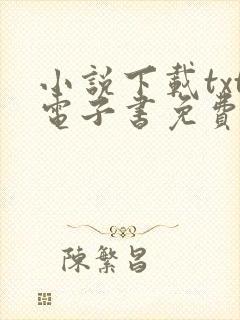 小說下載txt
電子書免費
陳繁昌